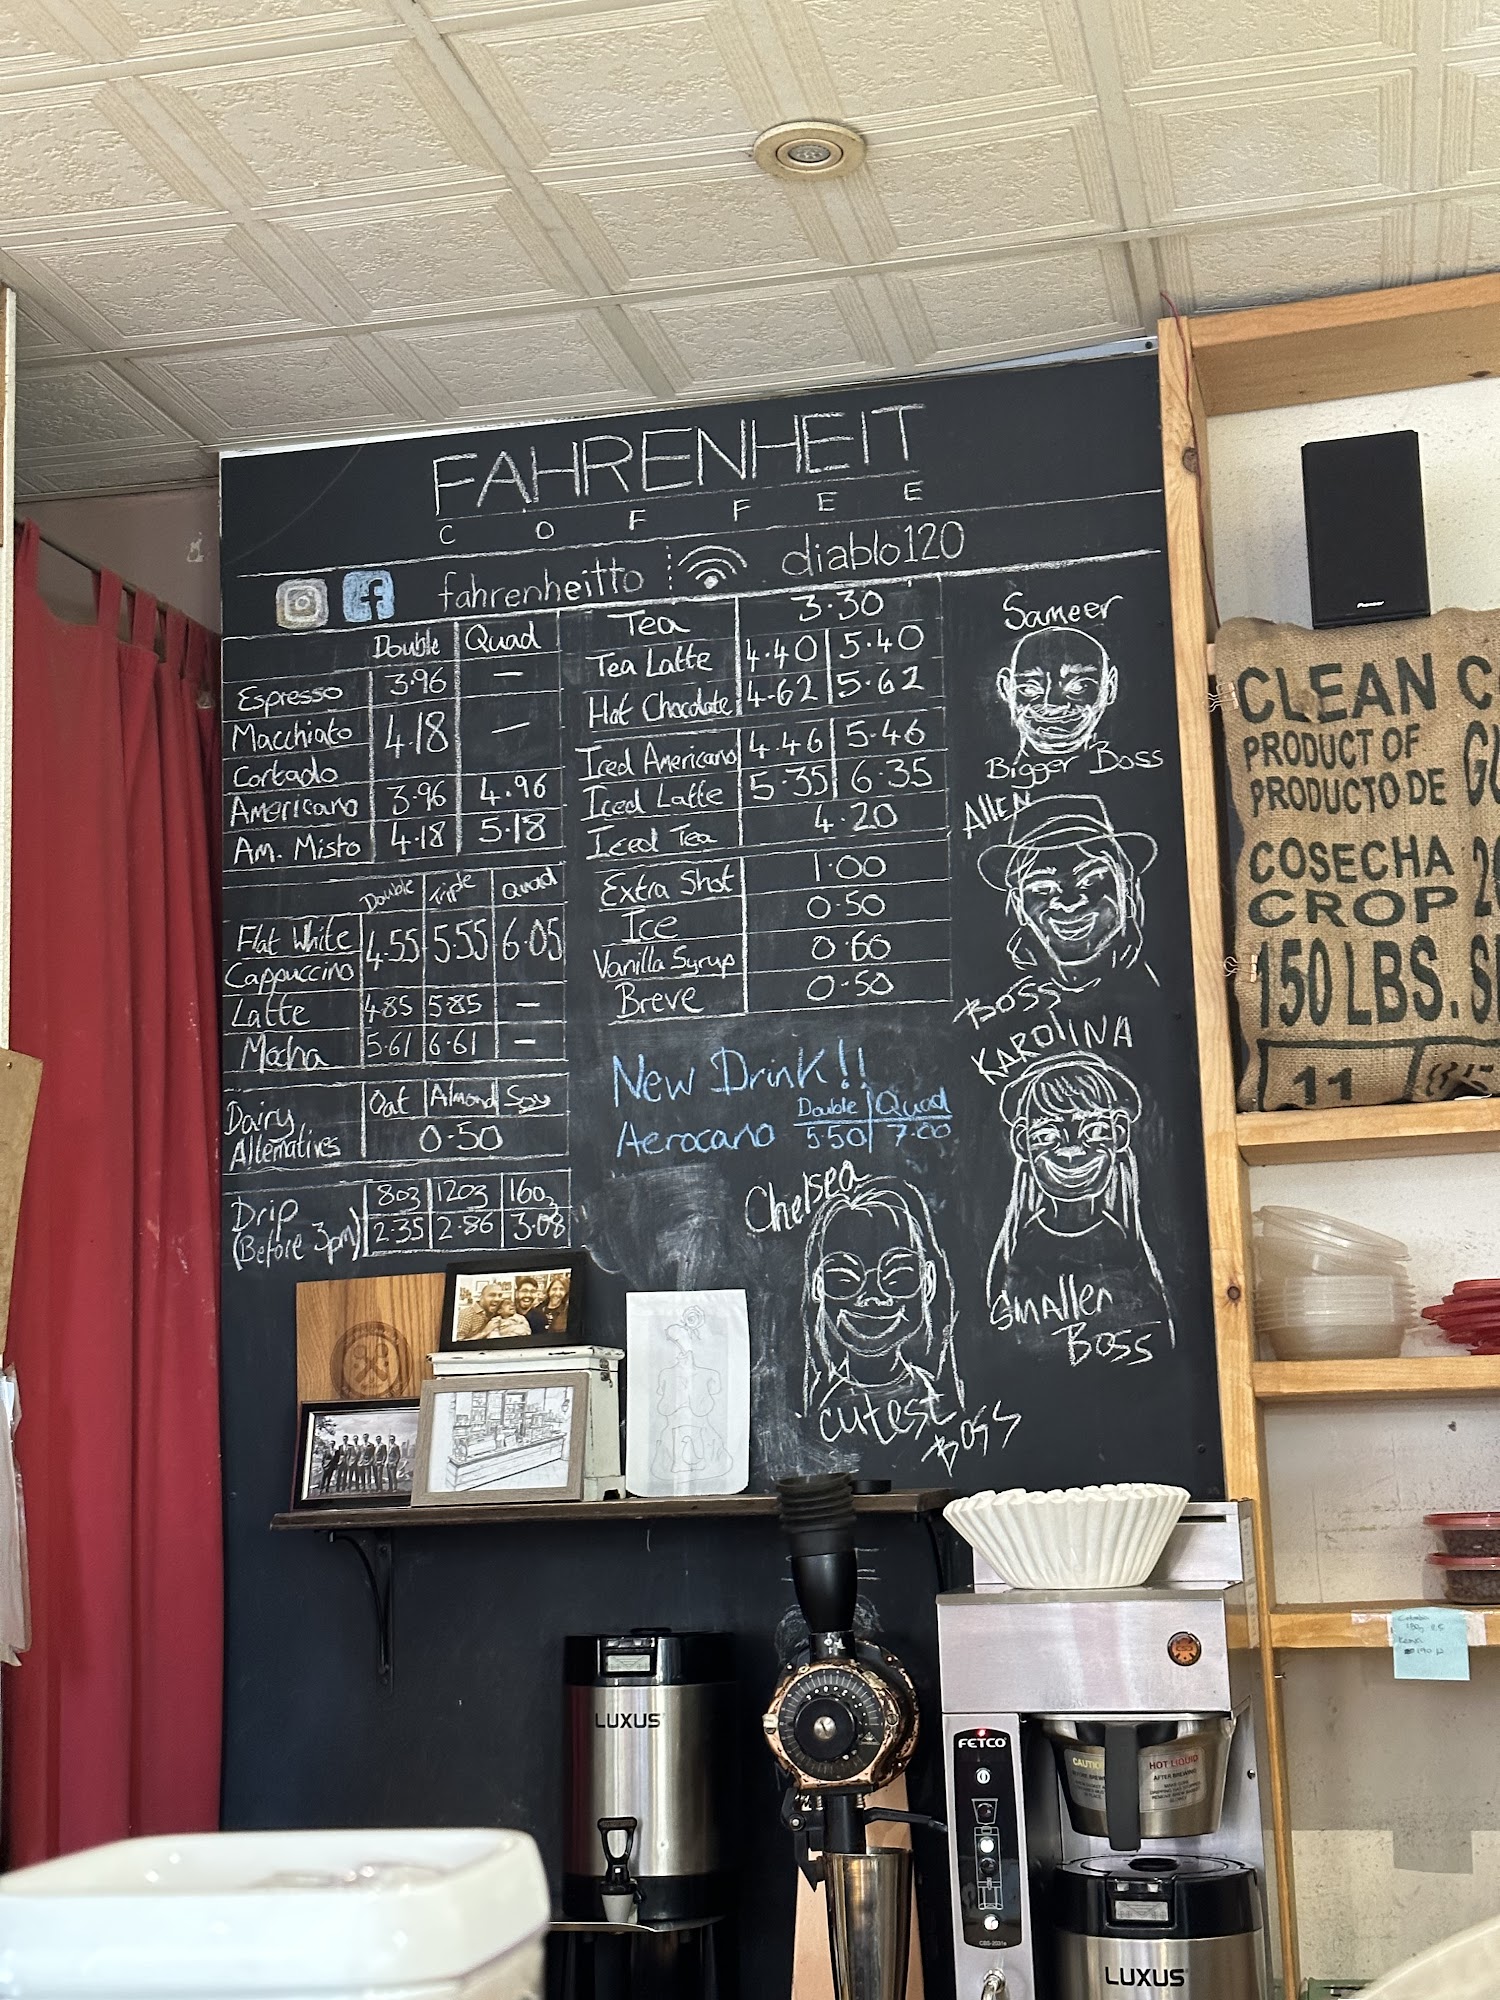 FAHRENHEIT
COFFEE
fahrenheitto diablo120
Double Quad
Espresso 3.96 —
Macchiato 4.18 —
Cortado
Americano 3.96 4.96
Am. Misto 4.18 5.18
Double Triple Quad
Flat White 4.55 5.55 6.05
Cappuccino
Latte 4.85 5.85 —
Mocha 5.61 6.61 —
Dairy Alternatives
Oat Almond Soy
0.50
Drip
(Before 3pm)
8oz 12oz 16oz
2.35 2.86 3.08
Tea 3.30
Tea Latte 4.40 5.40
Hot Chocolate 4.62 5.62
Iced Americano 4.46 5.46
Iced Latte 5.35 6.35
Iced Tea 4.20
Extra Shot 1.00
Ice 0.50
Vanilla Syrup 0.60
Breve 0.50
New Drink!!
Double Quad
Aerocano 5.50 7.00
Sameer
Bigger Boss
Allen
Boss
KAROLINA
Smaller
Boss
Chelsea
cutest
Boss
Pioneer
CLEAN C
PRODUCT OF
PRODUCTO DE
COSECHA
CROP
150 LBS.
11
LUXUS
FETCO
HOT LIQUID
AFTER BREWING
LUXUS